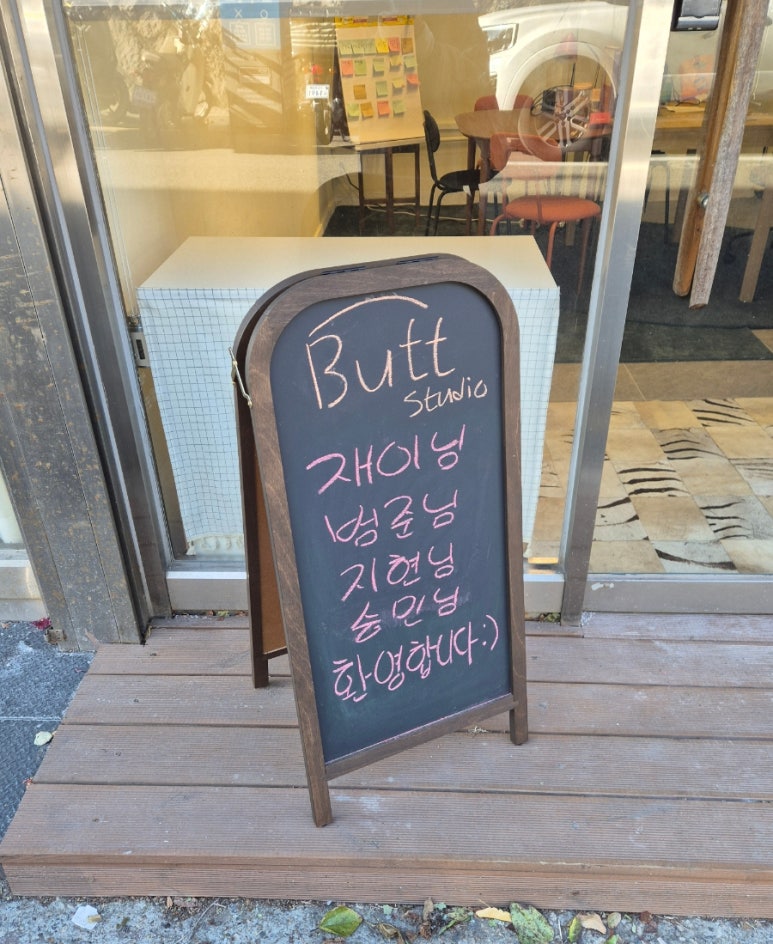 Butt
studio
재이님
범준님
지현님
승민님
환영합니다:)